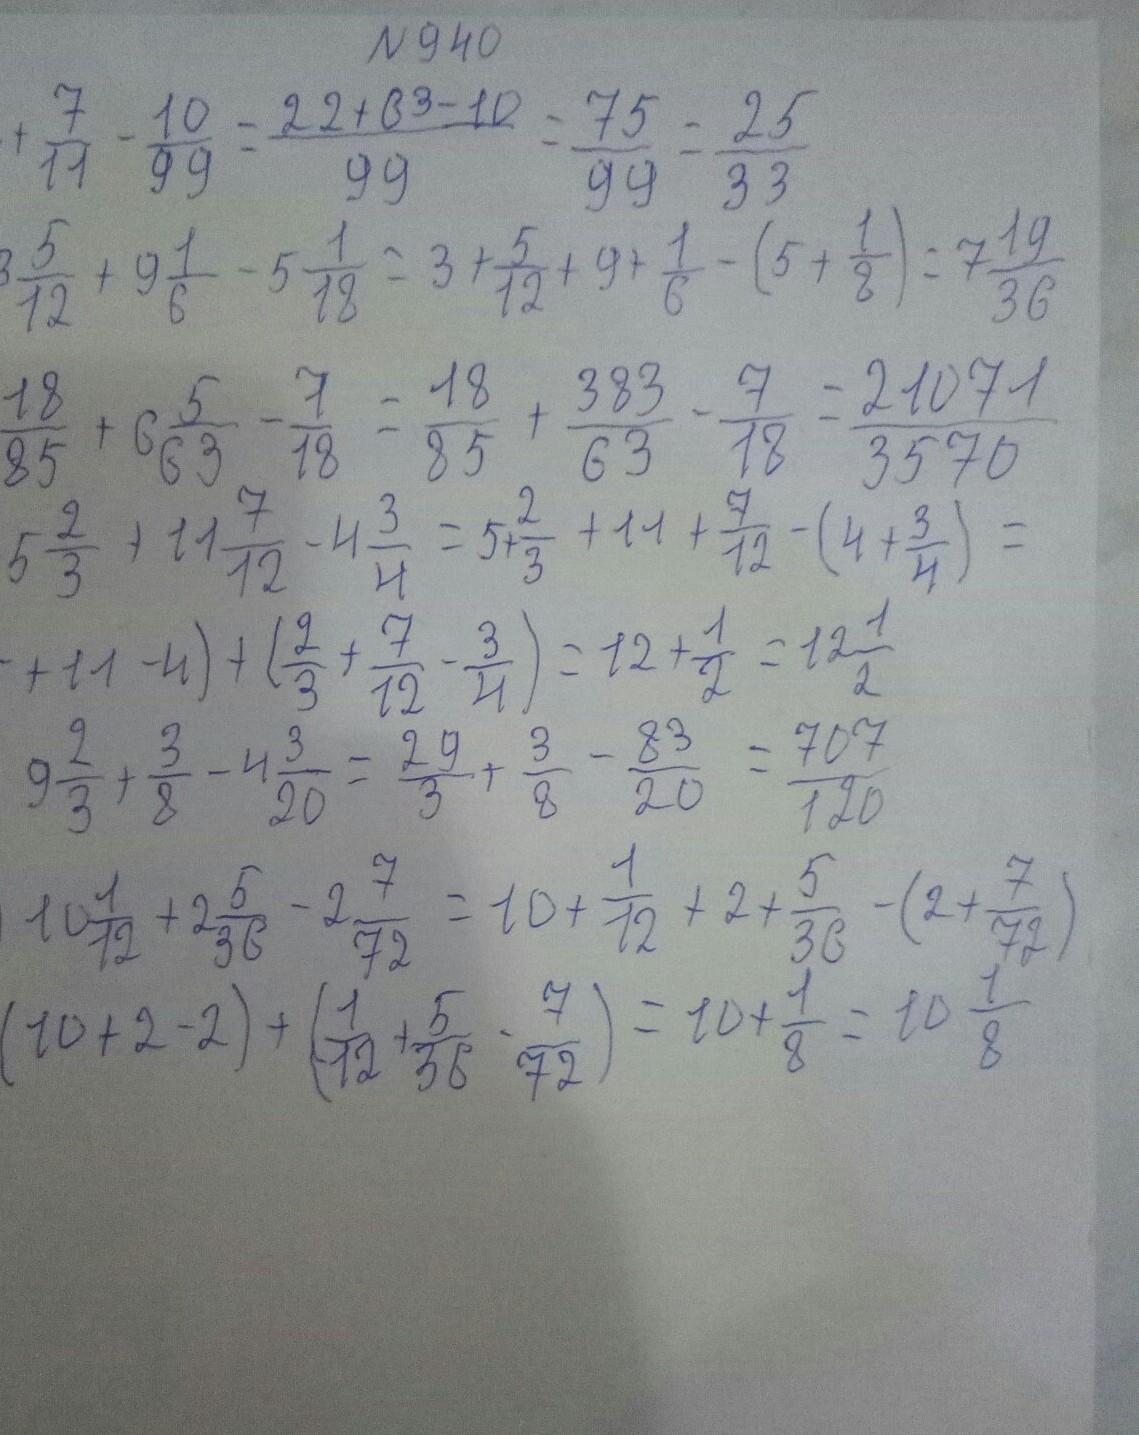 N940
+ 7/11 - 10/99 = (22+63-10)/99 = 75/99 = 25/33
3 5/12 + 9 1/6 - 5 1/18 = 3 + 5/12 + 9 + 1/6 - (5 + 1/8) = 7 19/36
18/85 + 6 5/63 - 7/18 = 18/85 + 383/63 - 7/18 = 21071/3570
5 2/3 + 11 7/12 - 4 3/4 = 5 + 2/3 + 11 + 7/12 - (4 + 3/4) =
+ 11 - 4) + (2/3 + 7/12 - 3/4) = 12 + 1/2 = 12 1/2
9 2/3 + 3/8 - 4 3/20 = 29/3 + 3/8 - 83/20 = 707/120
) 10 1/12 + 2 5/36 - 2 7/72 = 10 + 1/12 + 2 + 5/36 - (2 + 7/72)
(10 + 2 - 2) + (1/12 + 5/36 - 7/72) = 10 + 1/8 = 10 1/8